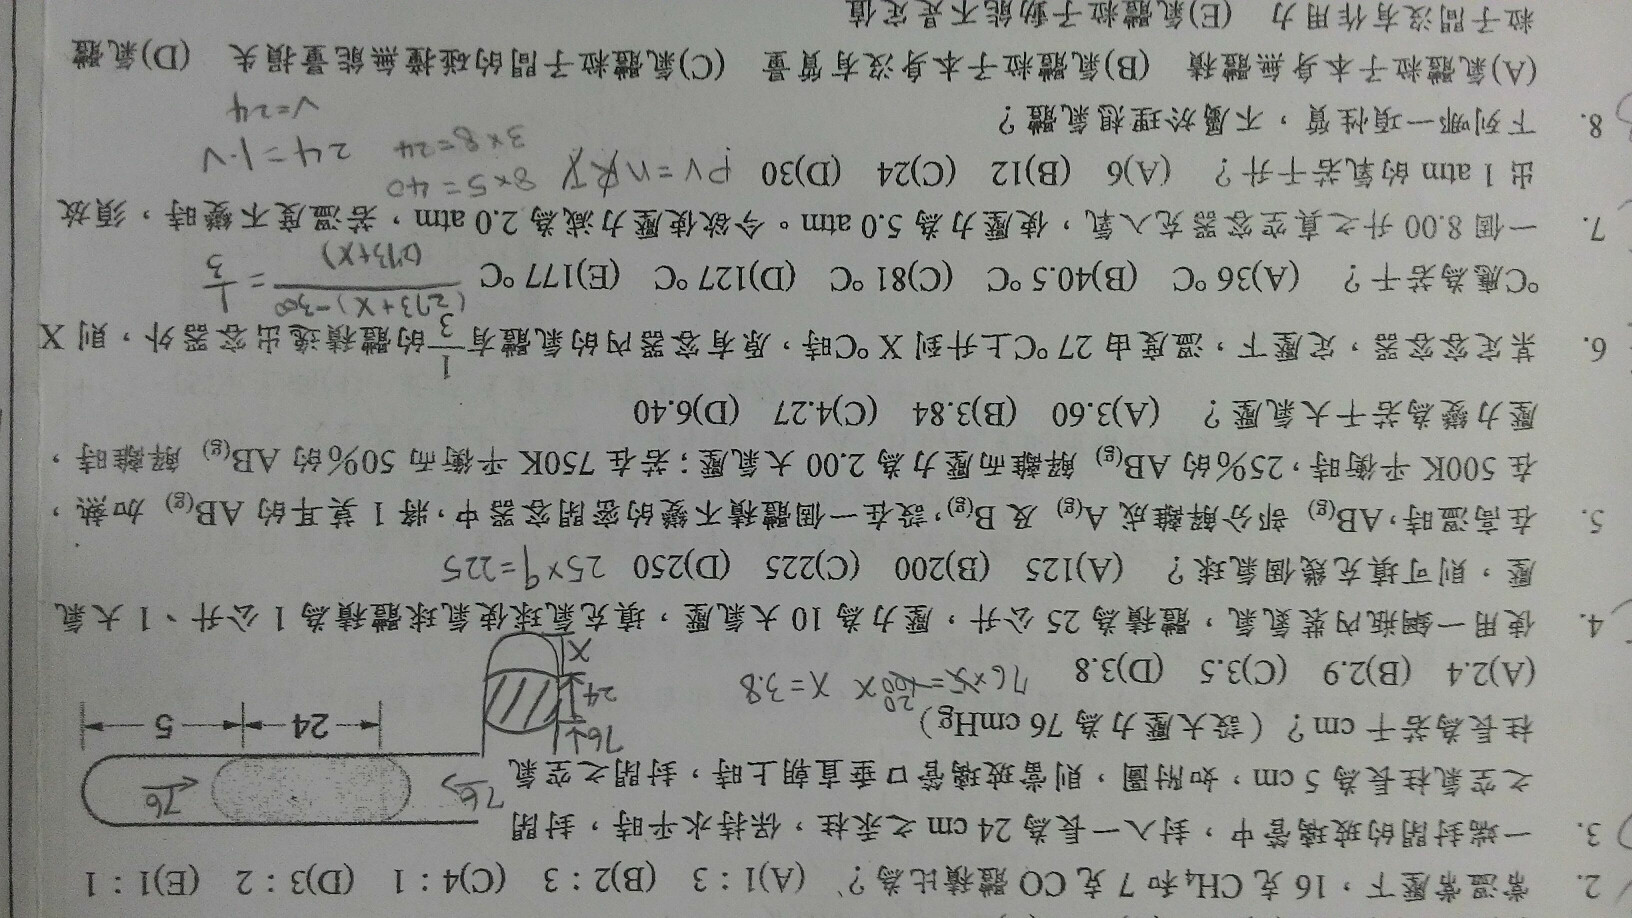 2. 常溫常壓下，16 克 CH₄ 和 7 克 CO 體積比為？ (A)1：3 (B)2：3 (C)4：1 (D)3：2 (E)1：1
3. 一端封閉的玻璃管中，封入一長為 24 cm 之汞柱，保持水平時，封閉
之空氣柱長為 5 cm，如附圖，則當玻璃管口垂直朝上時，封閉之空氣
柱長為若干 cm？（設大壓力為 76 cmHg）
(A)2.4 (B)2.9 (C)3.5 (D)3.8
76×5=100X X=3.8
20
76
76
24
5
76
24
X
4. 使用一鋼瓶內裝氦氣，體積為 25 公升，壓力為 10 大氣壓，填充氣球使氣球體積為 1 公升、1 大氣
壓，則可填充幾個氣球？ (A)125 (B)200 (C)225 (D)250 25×9=225
5. 在高溫時，AB(g) 部分解離成 A(g) 及 B(g)，設在一個體積不變的密閉容器中，將 1 莫耳的 AB(g) 加熱，
在 500K 平衡時，25%的 AB(g) 解離而壓力為 2.00 大氣壓；若在 750K 平衡而 50%的 AB(g) 解離時，
壓力變為若干大氣壓？ (A)3.60 (B)3.84 (C)4.27 (D)6.40
6. 某定容容器，定壓下，溫度由 27 °C上升到 X °C時，原有容器內的氣體有1/3的體積逸出容器外，則 X
°C應為若干？ (A)36 °C (B)40.5 °C (C)81 °C (D)127 °C (E)177 °C
(273+X)-300/(273+X) = 1/3
7. 一個 8.00 升之真空容器充入氧，使壓力為 5.0 atm。今欲使壓力減為 2.0 atm，若溫度不變時，須放
出 1 atm 的氧若干升？ (A)6 (B)12 (C)24 (D)30 PV=nRT 8×5=40
3×8=24 24=1·V
V=24
8. 下列哪一項性質，不屬於理想氣體？
(A)氣體粒子本身無體積 (B)氣體粒子本身沒有質量 (C)氣體粒子間的碰撞無能量損失 (D)氣體
粒子間沒有作用力 (E)氣體粒子動能不是定值